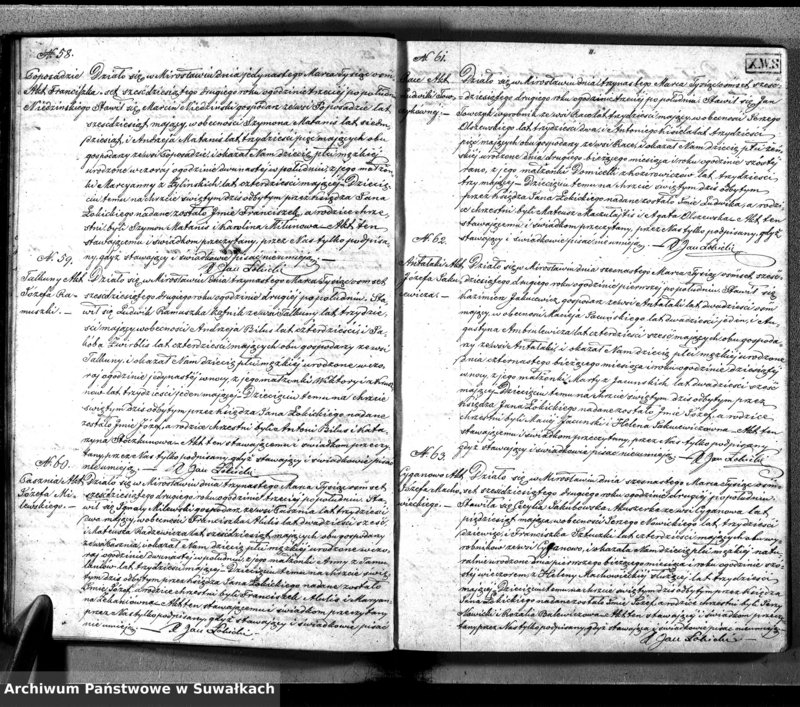 N. 58.
Poposadzie Działo się w Mirosławiu dnia jedynastego Marca tysiąc osm-
Akt Franciszka set sześćdziesiątego drugiego roku o godzinie trzeciej po południu
Niedzinskiego Stawił się Marcin gospodarz ze wsi Poposadzie lat
sześćdziesiąt mający w obecności Szymona Matanis lat siedm-
dziesiąt i Andrzeja Matanis lat trzydzieści pięć mających obu
gospodarzy ze wsi Poposadzie i okazał Nam dziecię płci męzkiej
urodzone wczoraj o godzinie dwunastej w południe, z jego małżon-
ki Maryanny z lat czterdzieści mającej Dziecię-
ciu temu na chrzcie świętym dziś odbytym przez Księdza Jana
Łobickiego nadane zostało Imie Franciszek, a rodzice chrze-
stni byli Szymon Matanis i Karolina Akt ten
stawającemu i świadkom przeczytany, przez Nas tylko podpisa-
ny, gdyż stawający i świadkowie pisać nieumieją. —
X Jan Łobicki
N. 59.
Talkuny Akt Działo się w Mirosławiu dnia trzynastego Marca tysiąc osmset
Józefa Ra- sześćdziesiątego drugiego roku o godzinie drugiej po południu. Sta-
muszki. — wił się Ludwik Ramuszka ze wsi Talkuny lat trzydzie-
ści mający w obecności Andrzeja Bilis lat czterdzieści i Ja-
kóba lat czterdzieści mających obu gospodarzy ze wsi
Talkuny i okazał Nam dziecię płci męzkiej urodzone wczo-
raj o godzinie jedynastej w nocy, z jego małżonki Wiktoryi
lat trzydzieści jeden mającej. Dziecięciu temu na chrzcie
świętym dziś odbytym przez Księdza Jana Łobickiego nadane
zostało Imie Józef, a rodzice chrzestni byli Antoni Bilis i Kata-
rzyna Akt ten stawającemu i świadkom przeczy-
tany, przez Nas tylko podpisany gdyż stawający i świadkowie pisać
nieumieją — X Jan Łobicki
N. 60.
Akt Działo się w Mirosławiu dnia trzynastego Marca tysiąc osmset
Józefa Mi- sześćdziesiątego drugiego roku o godzinie trzeciej po południu. Sta-
lewskiego. — wił się Ignacy Milewski gospodarz ze wsi lat trzydzieści
dwa mający, w obecności Franciszka lat dwadzieścia sześć
i Mateusza lat sześćdziesiąt mających obu gospodarzy
ze wsi i okazał Nam dziecię płci męzkiej urodzone wczo-
raj o godzinie dwunastej w południe z jego małżonki Anny z
lat trzydzieści mającej. Dziecięciu temu na chrzcie świę-
tym dziś odbytym przez Księdza Jana Łobickiego nadane zostało
Imie Józef, a rodzice chrzestni byli Franciszek i Maryan-
na Akt ten stawającemu i świadkom przeczytany
przez Nas tylko podpisany, gdyż stawający i świadkowie pisać
nieumieją — X Jan Łobicki
N. 61.
Akt Działo się w Mirosławiu dnia trzynastego Marca tysiąc osmset sześć-
Ludwiki dziesiątego drugiego roku o godzinie trzeciej po południu. Stawił się Jan
wyrobnik ze wsi lat trzydzieści mający w obecności Jerzego
Olszewskiego lat trzydzieści dwa, i Antoniego lat trzydzieści
pięć mających obu gospodarzy ze wsi i okazał Nam dziecię płci żeń-
skiej urodzone dnia drugiego bieżącego miesiąca i roku o godzinie szóstej
rano, z jego małżonki Domicelli z lat trzydzieści
trzy mającej. Dziecięciu temu na chrzcie świętym dziś odbytym
przez Księdza Jana Łobickiego nadane zostało Imie Ludwika, a rodzi-
ce chrzestni byli Mateusz i Agata Olszewska Akt ten
stawającemu i świadkom przeczytany, przez Nas tylko podpisany, gdyż
stawający i świadkowie pisać nieumieją. — X Jan Łobicki
N. 62.
Antalaki Akt Działo się w Mirosławiu dnia szesnastego Marca tysiąc osmset sześć-
Józefa Jaku- dziesiątego drugiego roku o godzinie pierwszej po południu. Stawił się
lewicza. — Kazimierz gospodarz ze wsi Antalaki lat dwadzieścia osm
mający w obecności lat dwadzieścia jeden, i Au-
gustyna Ambulewicza lat czterdzieści sześć mających obu gospoda-
rzy ze wsi Antalaki i okazał Nam dziecię płci męzkiej urodzone
dnia czternastego bieżącego miesiąca i roku o godzinie dziesiątej
w nocy, z jego małżonki Marty z lat dwadzieścia sześć
mającej. Dziecięciu temu na chrzcie świętym dziś odbytym przez
Księdza Jana Łobickiego nadane zostało Imie Józef, a rodzice
chrzestni byli i Helena Akt ten
stawającemu i świadkom przeczytany, przez Nas tylko podpisany,
gdyż stawający i świadkowie pisać nieumieją. —
X Jan Łobicki
N. 63.
Cyganowo Akt Działo się w Mirosławiu dnia szesnastego Marca tysiąc osm-
Józefa Macho- set sześćdziesiątego drugiego roku o godzinie drugiej po południu
wickiego. — Stawiła się Cecylia Jakubowska Akuszerka ze wsi Cyganowa lat
pięćdziesiąt mająca w obecności Jerzego Nowickiego lat trzydzieści
dziewięć i Franciszka lat czterdzieści mających obu wy-
robników ze wsi Cyganowo, i okazała Nam dziecię płci męzkiej natu-
ralnie urodzone dnia pierwszego bieżącego miesiąca i roku o godzinie szó-
stej wieczorem z Heleny Machowickiej służącej lat trzydzieści
mającej. Dziecięciu temu na chrzcie świętym dziś odbytym przez Księdza
Jana Łobickiego nadane zostało Imie Józef, a rodzice chrzestni byli Jerzy
Nowicki i Rozalia Akt ten stawającej i świadkom przeczy-
tany przez Nas tylko podpisany, gdyż stawająca i świadkowie pisać nieumieją —
X Jan Łobicki
Archiwum Państwowe w Suwałkach